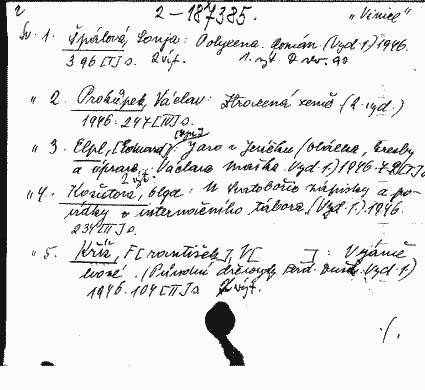 2 2-187385. „Vinice"
Sv. 1. Špálová, Sonja: Polyxena. Román. (Vyd. 1.) 1946.
396 [I] s. 2 výt.
„ 2. Prokůpek, Václav: Ztracená země (2. vyd.)
1946. 247 [III] s.
„ 3. Elpl, [Eduard]: Jaro v Jeníčku. (Obálka, kresby
a úprava Václava Maška. Vyd. 1.) 1946.
2 výt.
„ 4. Košutová, Olga: U Svatobořic zápisky a po-
vídky z internačního tábora. (Vyd. 1.) 1946.
234 [II] s.
„ 5. Kříž, F[rantišek], V[ ]:
(Původní dřevoryty Ferd. Vyd. 1.)
1946. 104 [II] s. 2 výt.
./.